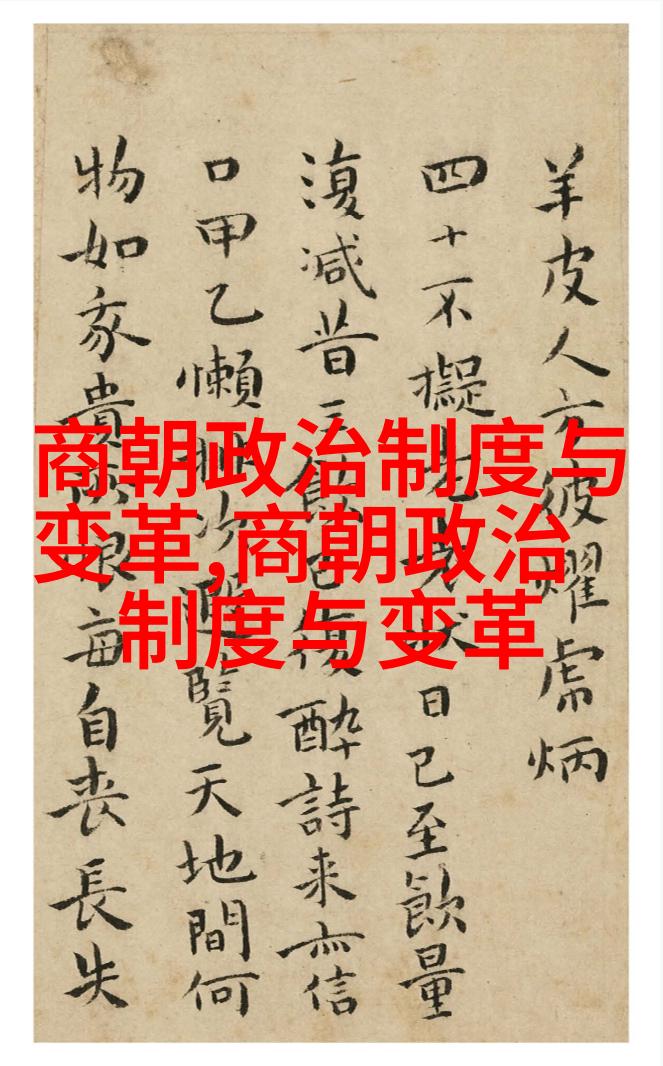 商朝政治制度与
变革,商朝政治
制度与变革
羊皮人方彼耀虎炳
四十不擬日已至飲量
復減昔三復醉詩来亦信
口甲乙懶覽天地間何
物如貴自丧長失